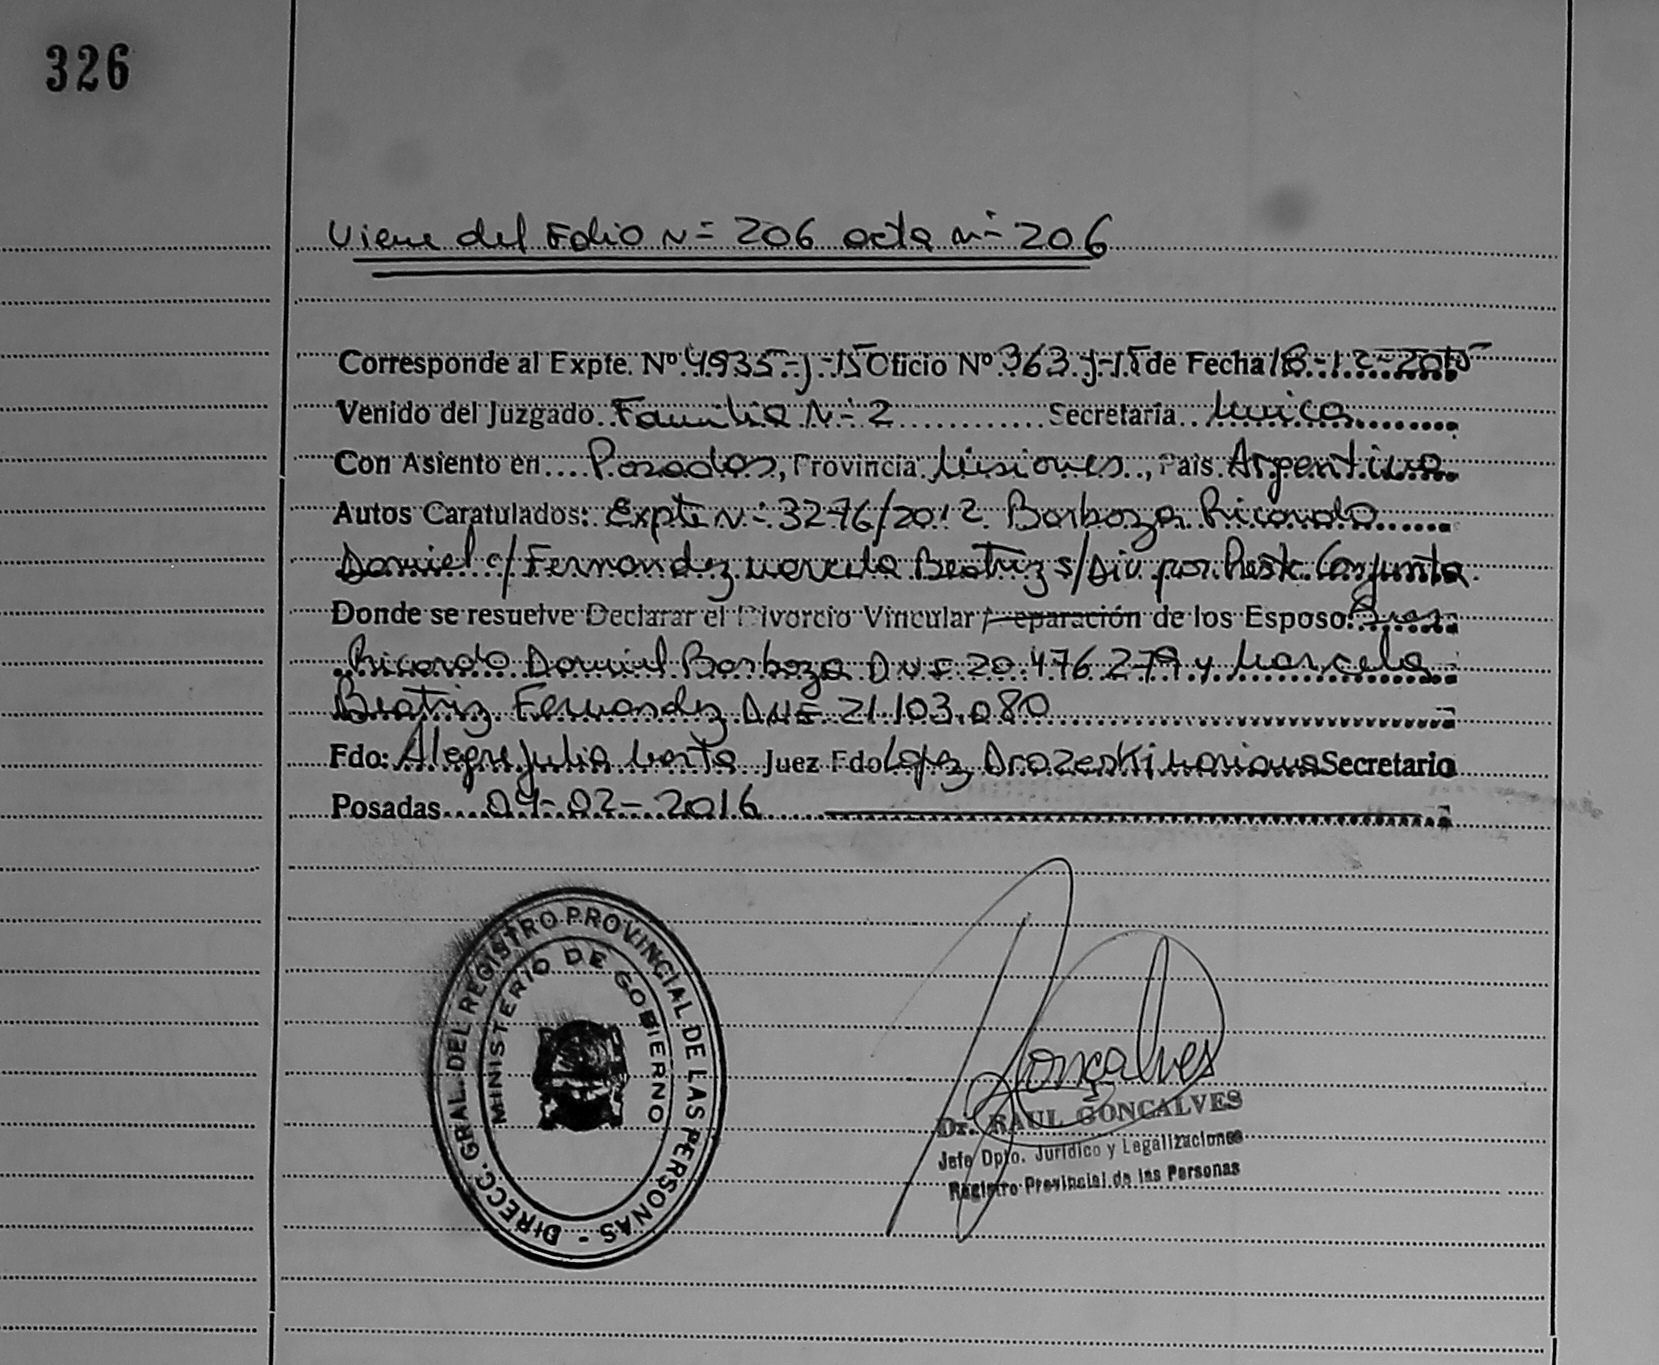 326
Viene del Folio N= 206 acta n= 206
Corresponde al Expte. Nº 4935-J-15 Oficio Nº 363-J-15 de Fecha 18-12-2015
Venido del Juzgado Familia N= 2 Secretaria única
Con Asiento en Posadas, Provincia Misiones, Pais Argentina
Autos Caratulados: Expte N= 3276/2012 Barboza Ricardo
Daniel c/ Fernandez Marcela Beatriz s/ Div por Pest. Conjunta
Donde se resuelve Declarar el Divorcio Vincular / Separación de los Esposo: Sres
Ricardo Daniel Barboza DNI 20.476.279 y Marcela
Beatriz Fernandez DNI 21.103.080
Fdo: Alegre Julia Marta Juez Fdo Lopez Drazeski Mariana Secretario
Posadas 04-02-2016
DIRECC. GRAL. DEL REGISTRO PROVINCIAL DE LAS PERSONAS -
MINISTERIO DE GOBIERNO
Gonçalves
Dr. RAUL GONÇALVES
Jefe Dpto. Jurídico y Legalizaciones
Registro Provincial de las Personas